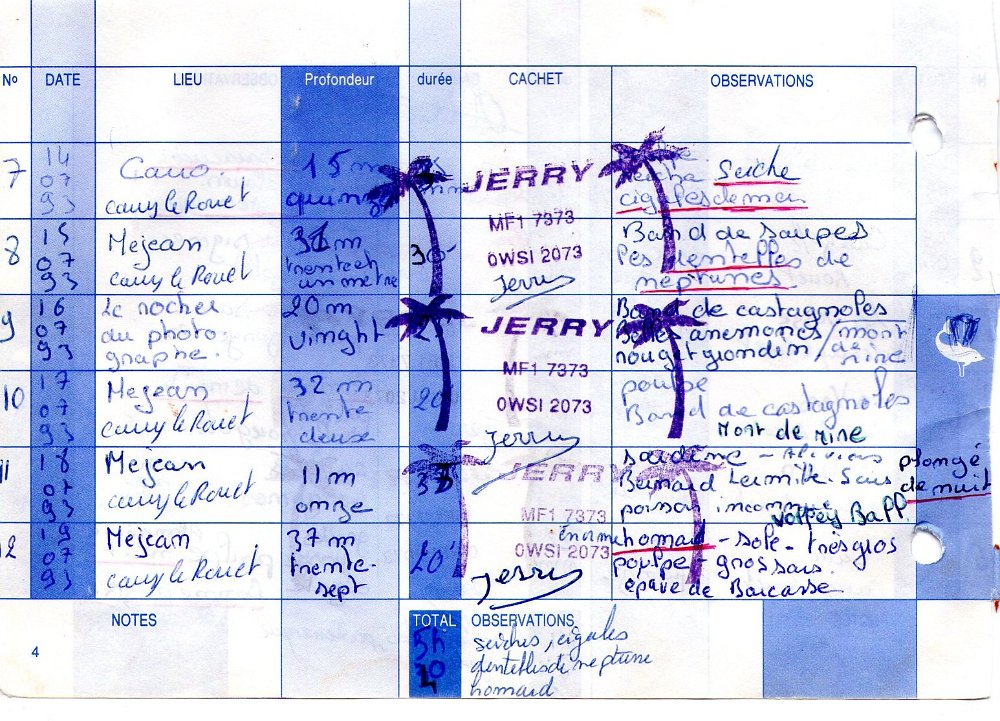 Nº DATE LIEU Profondeur durée CACHET OBSERVATIONS
7 14 07 93
Carro.
carry le Rouet
15 m
quinze
JERRY
MF1 7373
OWSI 2073
Jerry
Seiche
cigales de mer
8 15 07 93
Mejean
carry le Rouet
31 m
trente et
un metre
30
Band de saupes
Des dentelles de
neptunes
9 16 07 93
Le rocher
du photo
graphe.
20 m
vinght
JERRY
MF1 7373
OWSI 2073
Jerry
Banc de castagnoles
Belles anemones / mort
nouget girondin / de rire
poulpe
10 17 07 93
Mejean
carry le Rouet
32 m
trente
deuse
20
Band de castagnoles
Mort de rire
11 18 07 93
Mejean
carry le Rouet
11 m
onze
JERRY
MF1 7373
OWSI 2073
Jerry
sardine - Alevins
Bernard Lermitte. Sans
poisson incommu
plongé
de nuit
Volley Ball
12 19 07 93
Mejean
carry le Rouet
37 m
trente-
sept
20'
énorme homard - sole - très gros
poulpe - gros sars.
épave de Barcasse
NOTES
4
TOTAL
5h
OBSERVATIONS
seiches, cigales
dentelles de neptune
homard